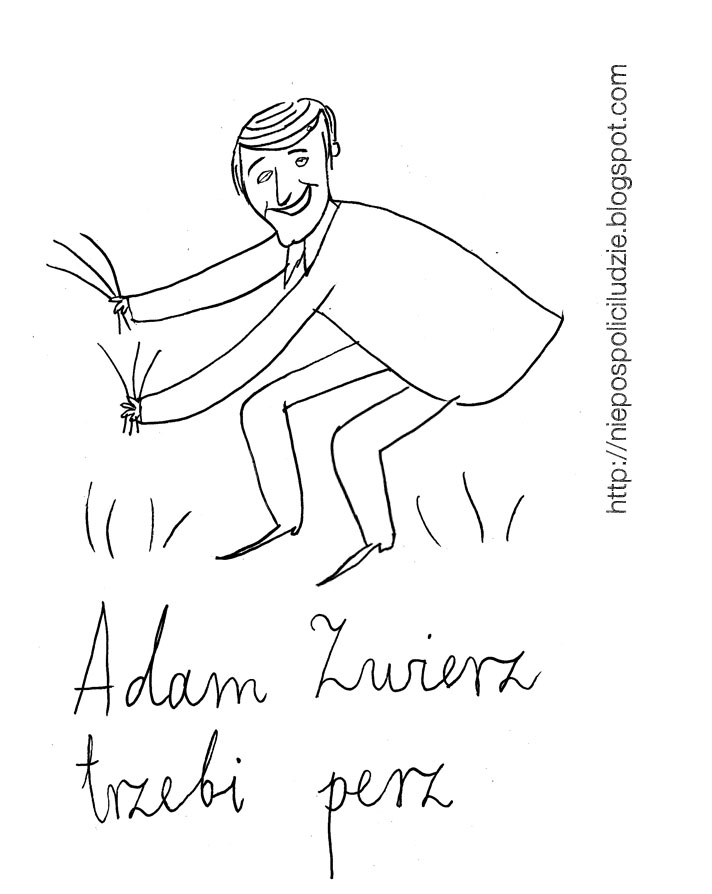 Adam Zwierz
trzebi perz
http://niepospoliciludzie.blogspot.com